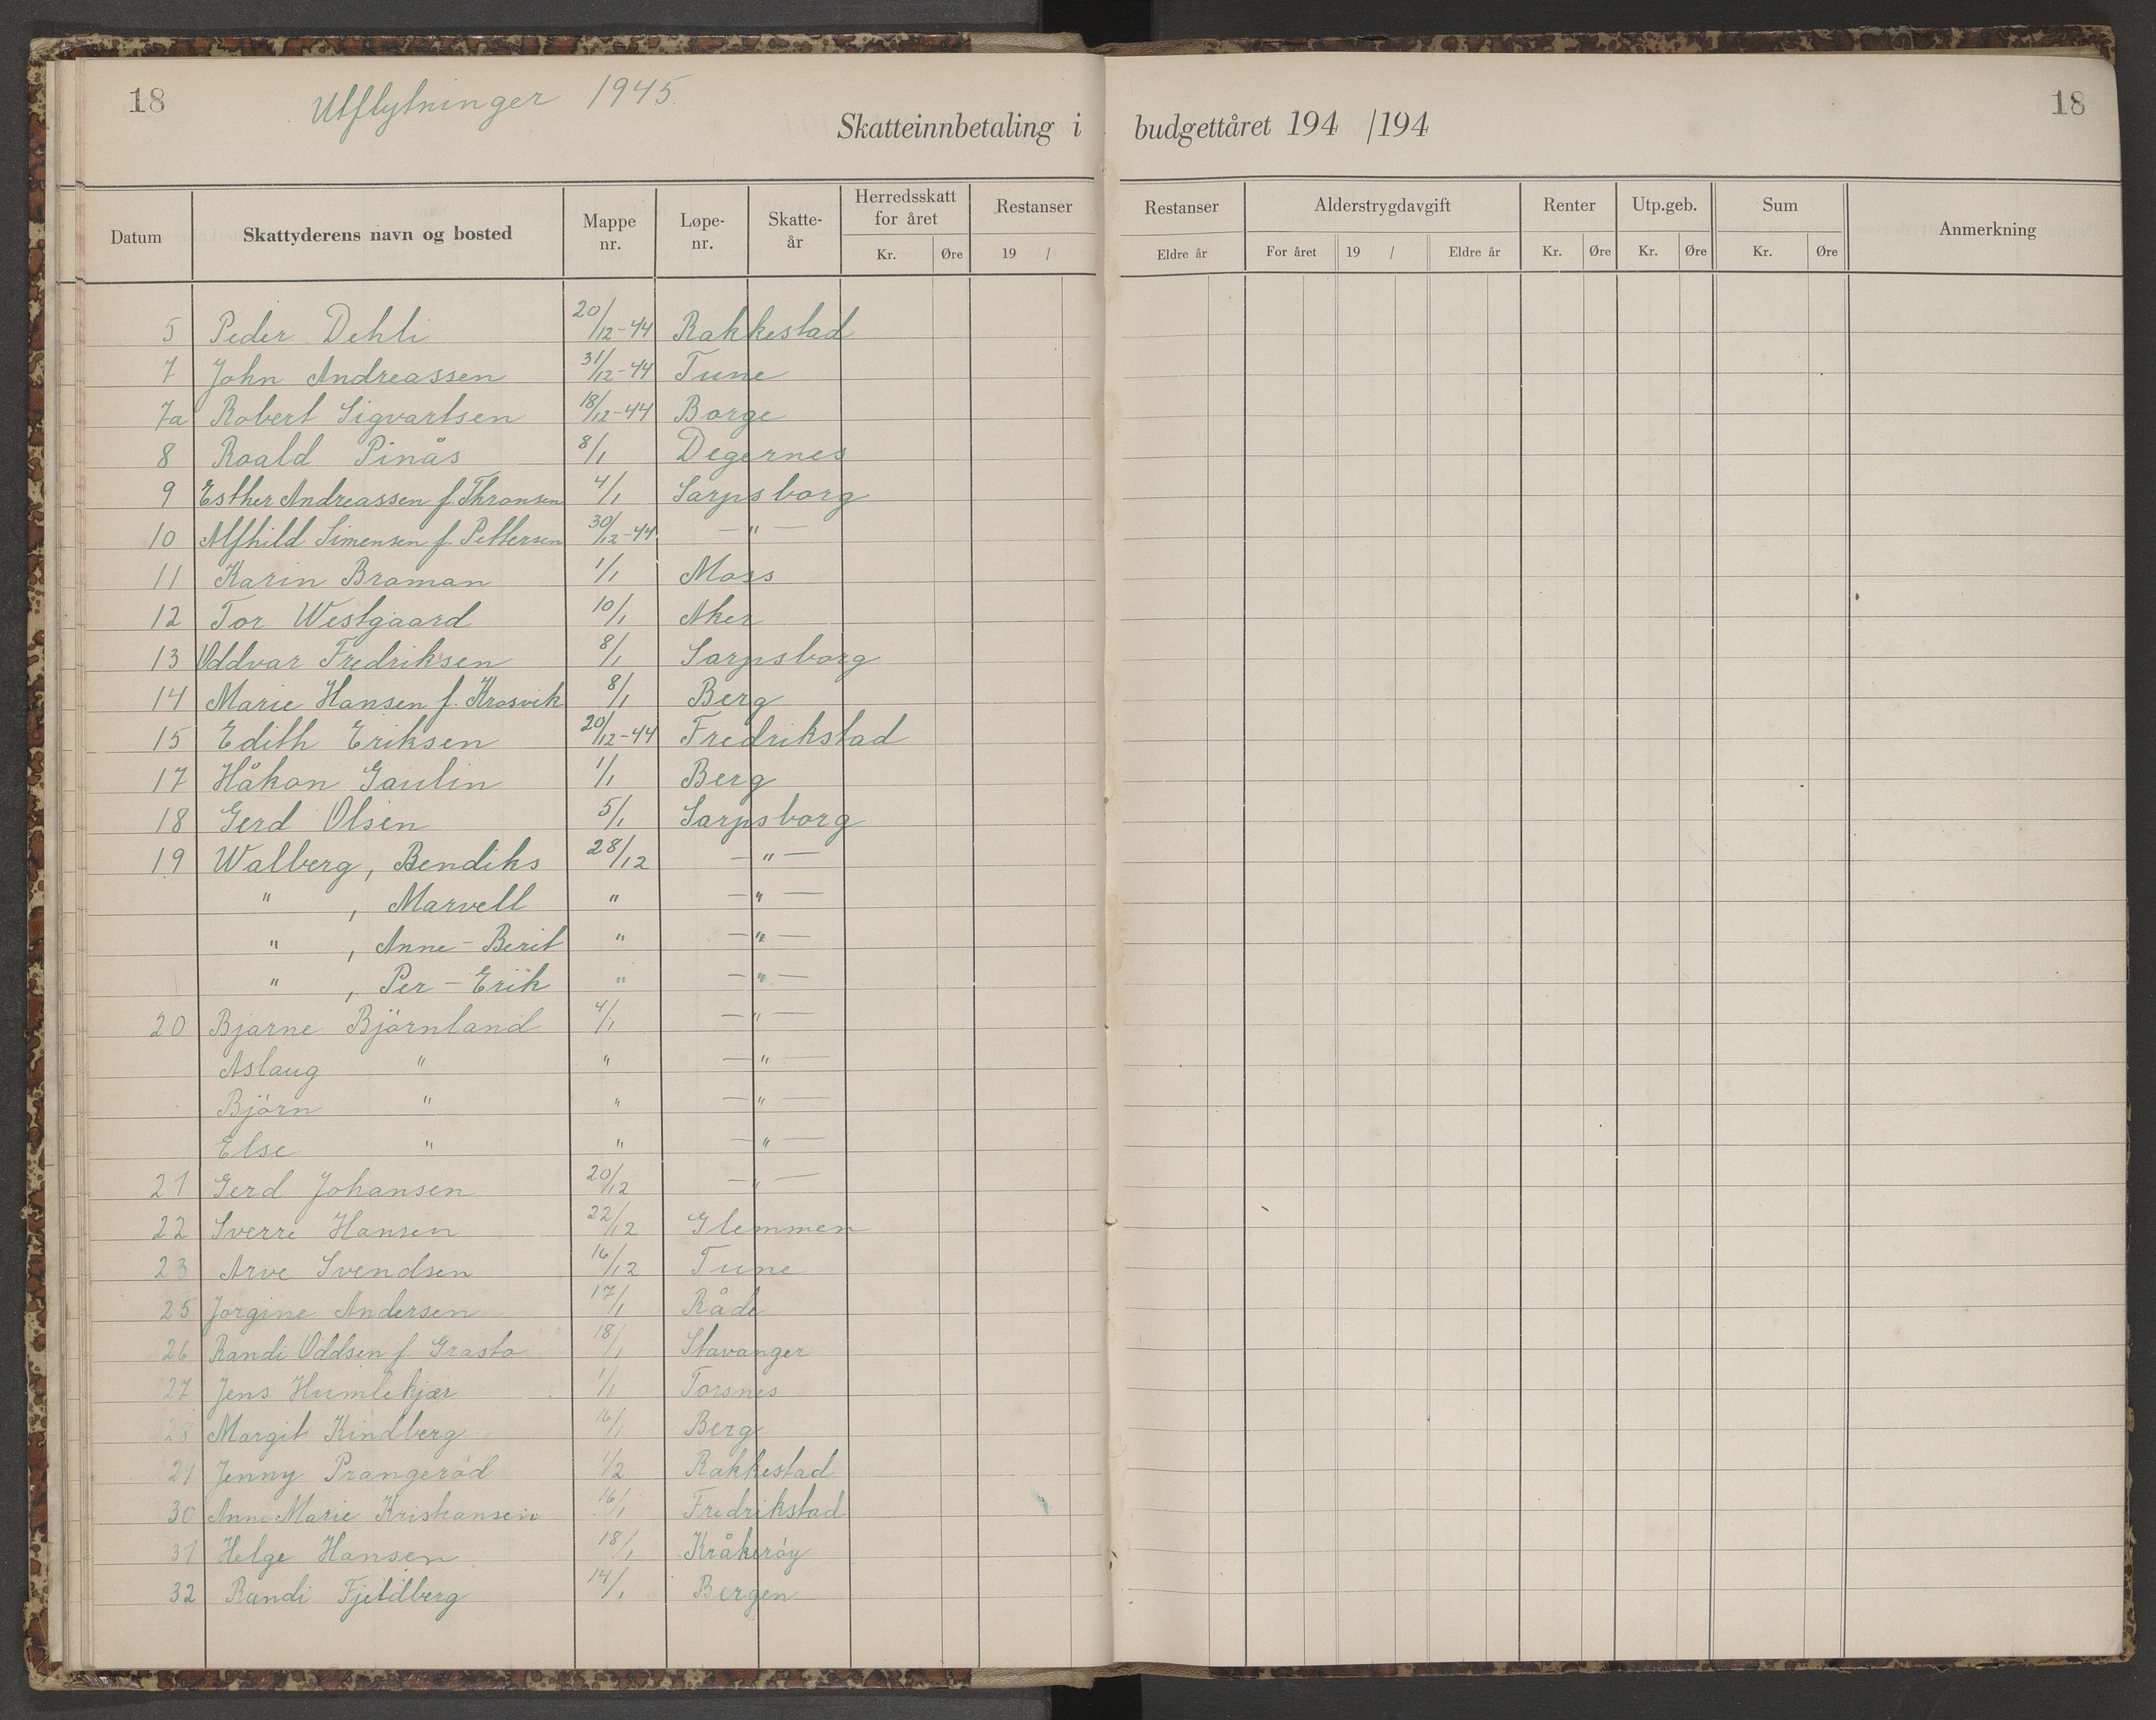 18
Utflytninger 1945.
Skatteinnbetaling i budgettåret 194 /194
18
Datum Skattyderens navn og bosted Mappe nr. Løpe-nr. Skatte-år Herredsskatt for året Kr. Øre Restanser 19 / Restanser Eldre år Alderstrygdavgift For året 19 / Eldre år Renter Kr. Øre Utp.geb. Kr. Øre Sum Kr. Øre Anmerkning
5 Peder Dehli 20/12-44 Rakkestad
7 John Andreassen 31/12-44 Tune
7a Robert Sigvartsen 18/12-44 Borge
8 Roald Pinås 8/1 Degernes
9 Esther Andreassen f. Thronsen 4/1 Sarpsborg
10 Alfhild Simensen f. Pettersen 30/12-44 — " —
11 Karin Broman 1/1 Moss
12 Tor Westgaard 10/1 Aker
13 Oddvar Fredriksen 8/1 Sarpsborg
14 Marie Hansen f. Krosvik 8/1 Berg
15 Edith Eriksen 20/12-44 Fredrikstad
17 Håkon Gaulin 1/1 Berg
18 Gerd Olsen 5/1 Sarpsborg
19 Walberg, Bendiks 28/12 — " —
" , Marvell " — " —
" , Anne-Berit " — " —
" , Per-Erik " — " —
20 Bjarne Björnland 4/1 — " —
Aslaug " " — " —
Björn " " — " —
Else " " — " —
21 Gerd Johansen 20/12 — " —
22 Sverre Hansen 22/12 Glemmen
23 Arve Svendsen 16/12 Tune
25 Jorgine Andersen 17/1 Råde
26 Randi Oddsen f. Grasto 18/1 Stavanger
27 Jens Humlekjær 1/1 Torsnes
28 Margit Kindberg 16/1 Berg
29 Jenny Prangeröd 1/2 Rakkestad
30 Anne Marie Kristiansen 16/1 Fredrikstad
31 Helge Hansen 18/1 Kråkeröy
32 Randi Fjeldberg 14/1 Bergen